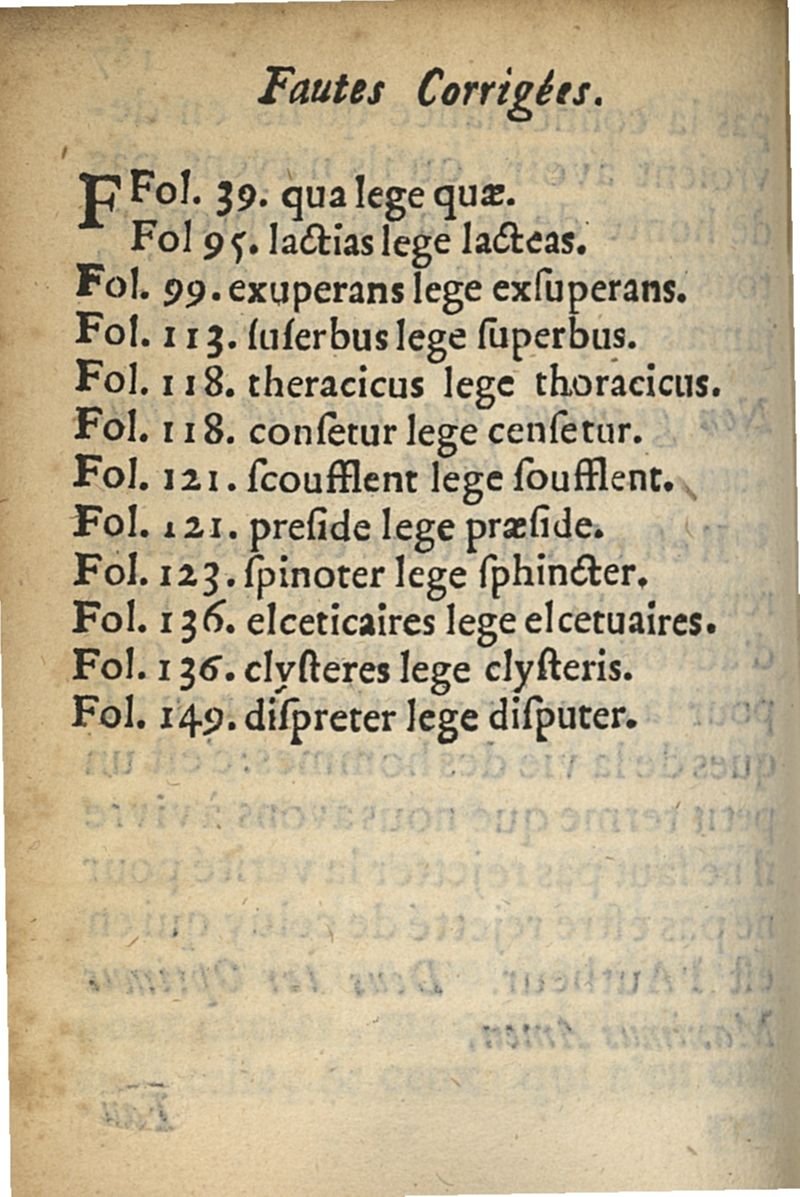 Fautes Corrigées.
FFol. 39. qua lege quæ.
Fol 95. lactias lege lacteas.
Fol. 99. exuperans lege exſuperans.
Fol. 113. ſuſerbus lege ſuperbus.
Fol. 118. theracicus lege thoracicus.
Fol. 118. conſetur lege cenſetur.
Fol. 121. ſcoufflent lege ſoufflent.
Fol. 121. preſide lege præſide.
Fol. 123. ſpinoter lege ſphincter.
Fol. 136. elceticaires lege elcetuaires.
Fol. 136. clyſteres lege clyſteris.
Fol. 149. diſpreter lege diſputer.